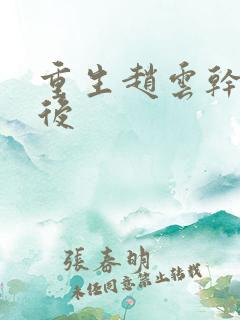 重生趙雲幹
後
張春明
未任同意禁止轉載